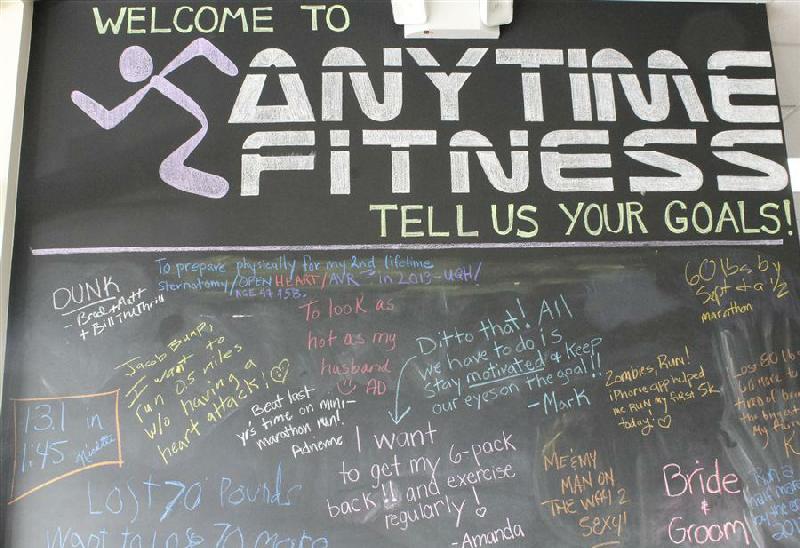 WELCOME TO
ANYTIME
FITNESS
TELL US YOUR GOALS!
DUNK
- Brad + Matt
+ Bill TruThrill
To prepare physically for my 2nd lifetime
sternotomy/OPEN HEART/AVR in 2013-UGH/
AGE 47.158.
To look as
hot as my
husband
AD
60 lbs by
Sept & a 1/2
marathon
Jacob Bump,
I want to
run 0.5 miles
w/o having a
heart attack!
Ditto that! All
we have to do is
stay motivated & keep
our eyes on the goal!!
-Mark
Beat last
yr's time on mini-
marathon run!
Adrienne
13.1 in
1:45
I want
to get my 6-pack
back!! and exercise
regularly!
-Amanda
Zombies, Run!
iPhone app helped
me RUN my first 5k
today!
ME & MY
MAN ON
THE WAY 2
SEXY!
Lost 70 Pounds
Want to lose 70 more
Bride
&
Groom
Run a
half mara
by the en
201
Lose 80 lb
tired of
the biggest